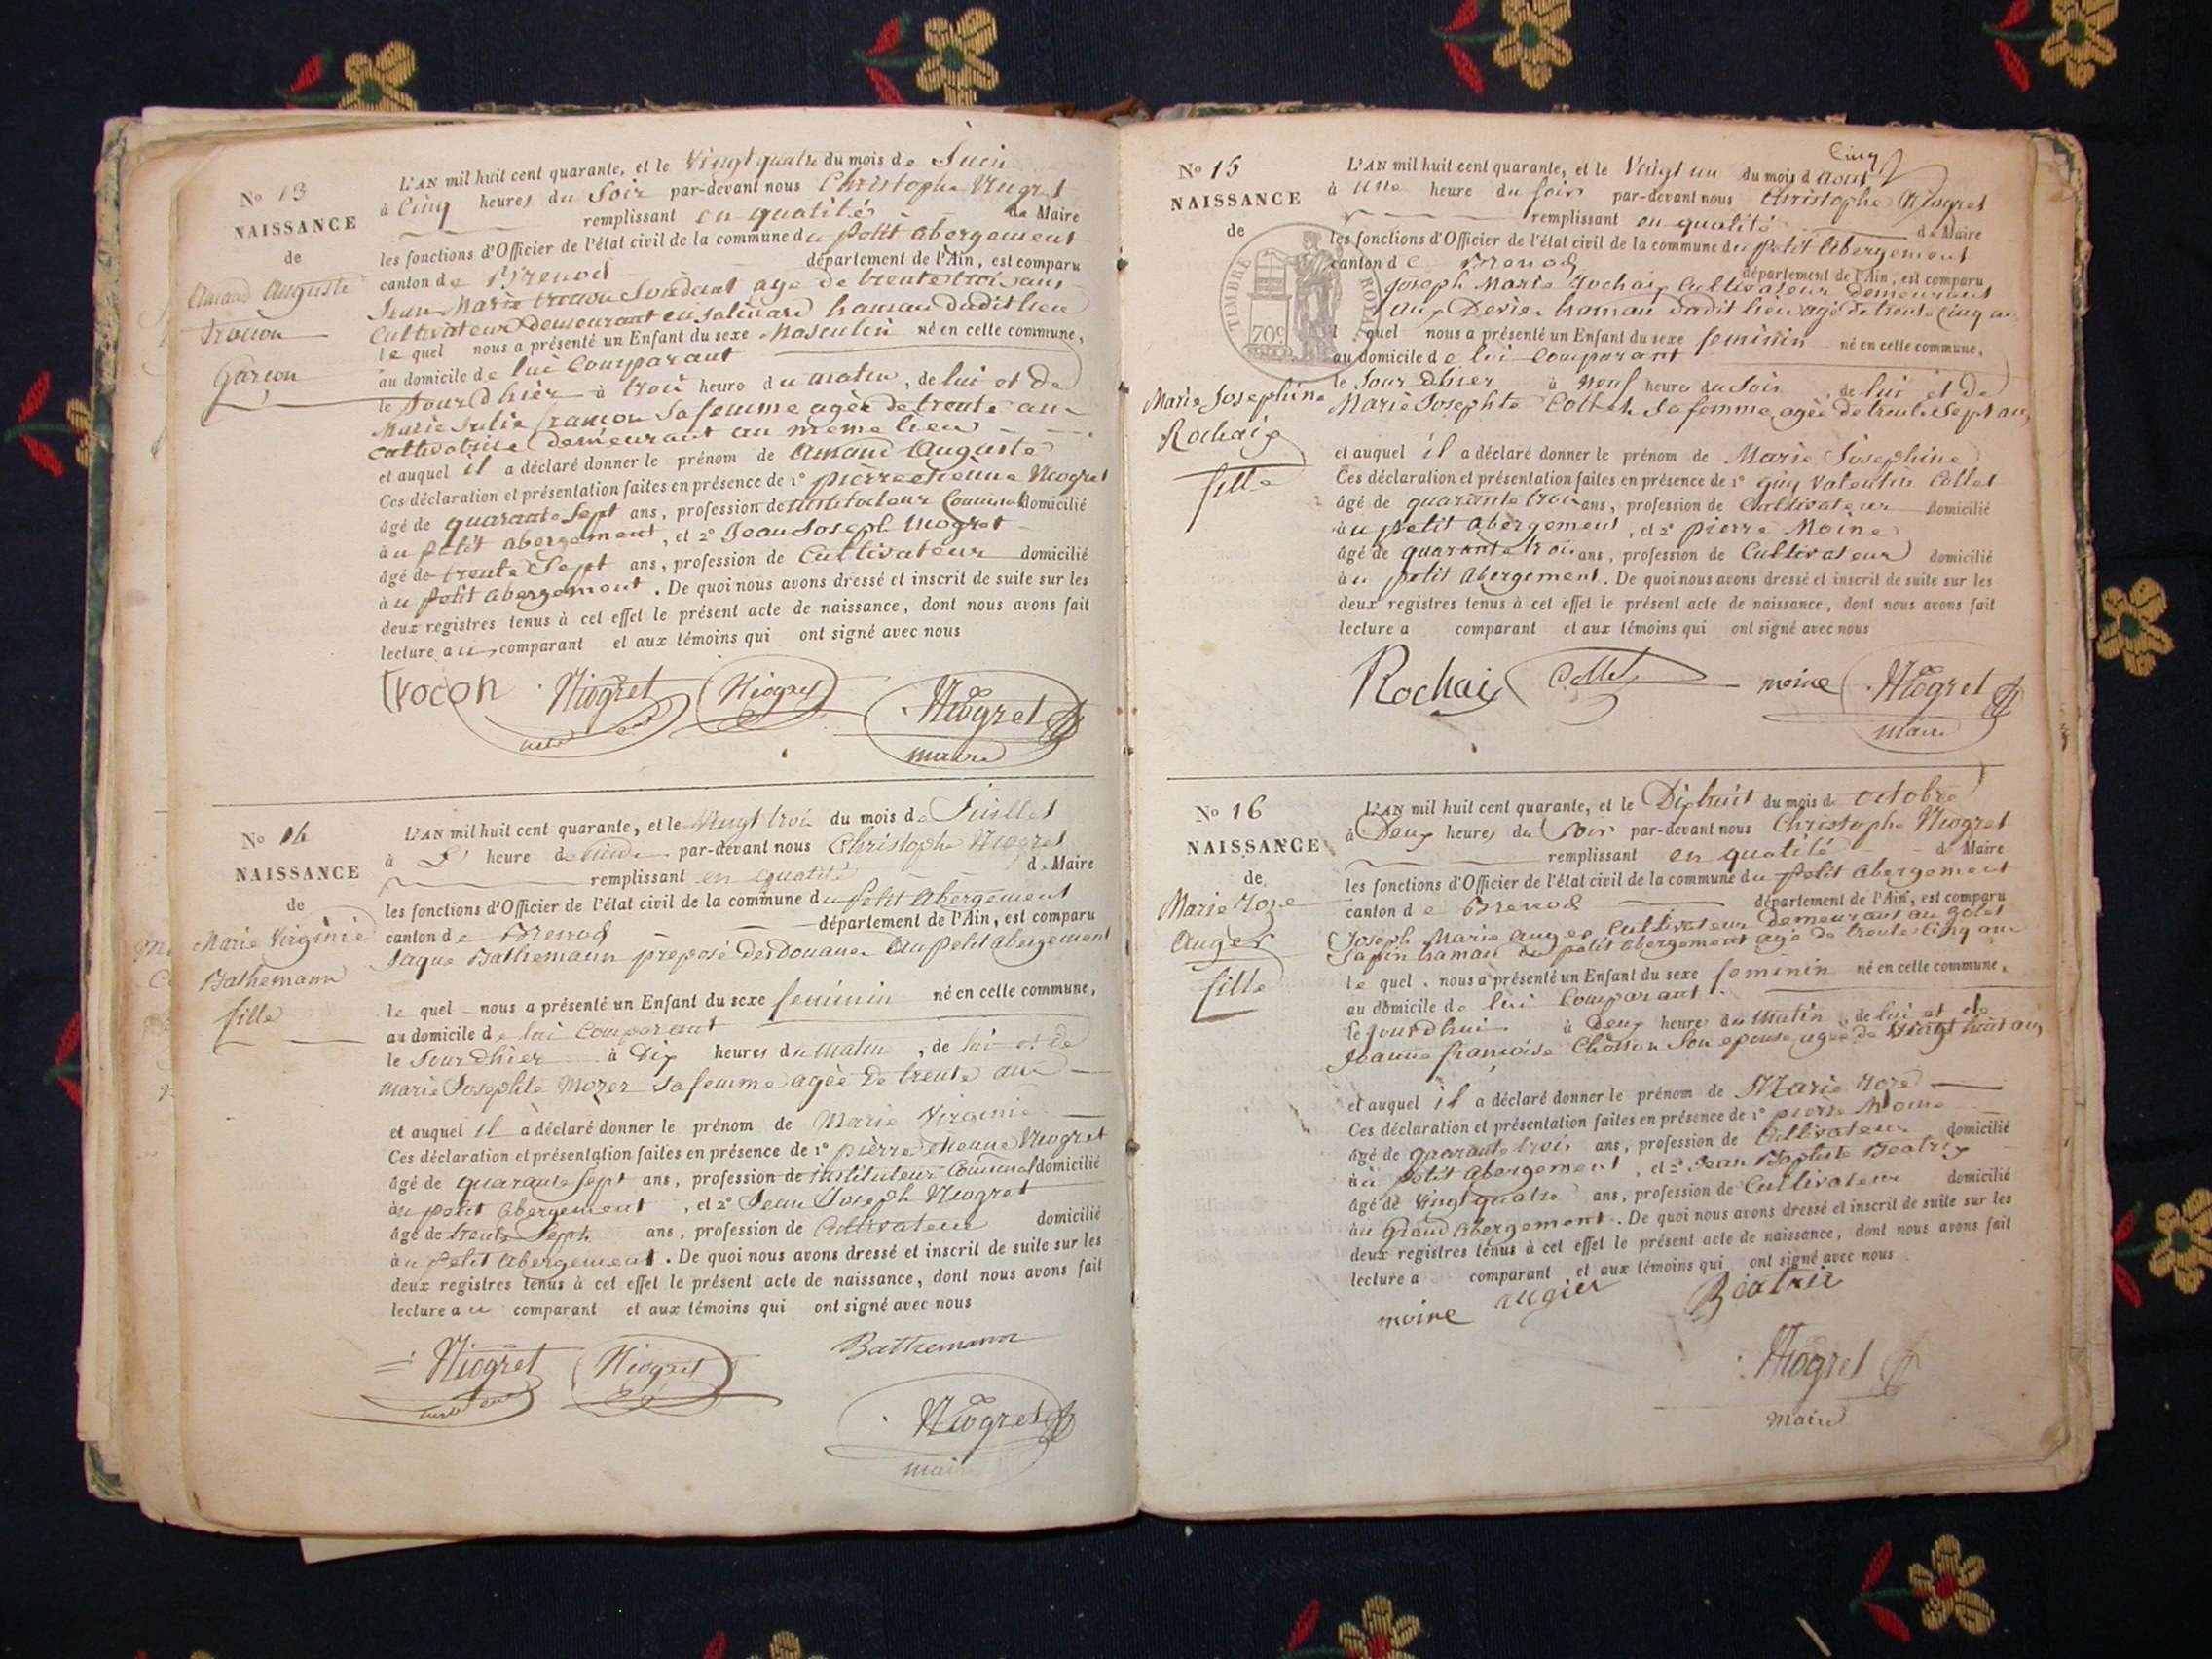 No 13
NAISSANCE
de
Amand Auguste
Trocon
Garcon
L'AN mil huit cent quarante, et le vingt quatre du mois de Juin
à Cinq heures du Soir par-devant nous Christophe Niogret
remplissant en qualité de Maire
les fonctions d'Officier de l'état civil de la commune du petit abergement
canton de Brenod département de l'Ain, est comparu
Jean Marie trocon agé de trente trois ans
Cultivateur Demeurant en hamau dudit lieu
le quel nous a présenté un Enfant du sexe Masculin né en cette commune,
au domicile de lui Comparant
le Jour D'hier à trois heure du matin, de lui et de
Marie Julie françon Sa femme agée de trente ans
cultivatrice demeurant au meme lieu
et auquel il a déclaré donner le prénom de Amand Auguste
Ces déclaration et présentation faites en présence de 1° pierre etienne Niogret
âgé de quarante Sept ans, profession de instituteur Communal domicilié
à u petit abergement, et 2° Jean Joseph Niogret
âgé de trente Sept ans, profession de Cultivateur domicilié
à u petit abergement. De quoi nous avons dressé et inscrit de suite sur les
deux registres tenus à cet effet le présent acte de naissance, dont nous avons fait
lecture au comparant et aux témoins qui ont signé avec nous
trocon Niogret Niogret Niogret
maire
No 14
NAISSANCE
de
Marie Virginie
Bathemann
fille
L'AN mil huit cent quarante, et le Vingt trois du mois de Juillet
à L' heure de midi par-devant nous Christophe Niogret
remplissant en qualité de Maire
les fonctions d'Officier de l'état civil de la commune du petit Abergement
canton de Brenod département de l'Ain, est comparu
Jaque Bathemann préposé des Douanes Au petit abergement
le quel nous a présenté un Enfant du sexe feminin né en cette commune,
au domicile de lui Comparant
le Jour D'hier à Dix heures du matin, de lui et de
marie Josephte Mozer sa femme agée de trente ans
et auquel il a déclaré donner le prénom de Marie Virginie
Ces déclaration et présentation faites en présence de 1° pierre etienne Niogret
âgé de quarante sept ans, profession de instituteur Communal domicilié
à u petit abergement, et 2° Jean Joseph Niogret
âgé de trente Sept ans, profession de Cultivateur domicilié
à u petit abergement. De quoi nous avons dressé et inscrit de suite sur les
deux registres tenus à cet effet le présent acte de naissance, dont nous avons fait
lecture au comparant et aux témoins qui ont signé avec nous
Niogret Niogret Bathemann
Niogret
maire
No 15
NAISSANCE
de
TIMBRE ROYAL
70c
Marie Josephine
Rochaix
fille
Cinq
L'AN mil huit cent quarante, et le Vingt un du mois d'aout
à une heure du soir par-devant nous Christophe Niogret
remplissant en qualité de Maire
les fonctions d'Officier de l'état civil de la commune du petit Abergement
canton de Brenod département de l'Ain, est comparu
Joseph Marie Rochaix Cultivateur Demeurant
aux hamau dudit lieu agé de trente Cinq ans
l quel nous a présenté un Enfant du sexe feminin né en cette commune,
au domicile de lui Comparant
le Jour d'hier à Neuf heures du Soir, de lui et de
Marie Josephte Collet Sa femme agée de trente Sept ans
et auquel il a déclaré donner le prénom de Marie Josephine
Ces déclaration et présentation faites en présence de 1° guy Valentin Collet
âgé de quarante trois ans, profession de Cultivateur domicilié
à u petit abergement, et 2° pierre Moine
âgé de quarante trois ans, profession de Cultivateur domicilié
à u petit Abergement. De quoi nous avons dressé et inscrit de suite sur les
deux registres tenus à cet effet le présent acte de naissance, dont nous avons fait
lecture a comparant et aux témoins qui ont signé avec nous
Rochaix Collet moine Niogret
maire
No 16
NAISSANCE
de
Marie Roze
Auger
fille
L'AN mil huit cent quarante, et le Dix huit du mois de octobre
à Deux heures du Soir par-devant nous Christophe Niogret
remplissant en qualité de Maire
les fonctions d'Officier de l'état civil de la commune du petit abergement
canton de Brenod département de l'Ain, est comparu
Joseph Marie Auger Cultivateur Demeurant au golet
Sapin hamau du petit abergement agé de trente Cinq ans
le quel nous a présenté un Enfant du sexe feminin né en cette commune,
au domicile de lui Comparant
le jourd'hui à Deux heures du Matin, de lui et de
Jeanne françoise Chosson Son epouse agée de Vingt huit ans
et auquel il a déclaré donner le prénom de Marie Roze
Ces déclaration et présentation faites en présence de 1° pierre Moine
âgé de quarante trois ans, profession de Cultivateur domicilié
à u petit abergement, et 2° Jean Baptiste Beatrix
âgé de Vingt quatre ans, profession de Cultivateur domicilié
à u Grand Abergement. De quoi nous avons dressé et inscrit de suite sur les
deux registres tenus à cet effet le présent acte de naissance, dont nous avons fait
lecture a comparant et aux témoins qui ont signé avec nous
moine augier Béatrix
Niogret
maire